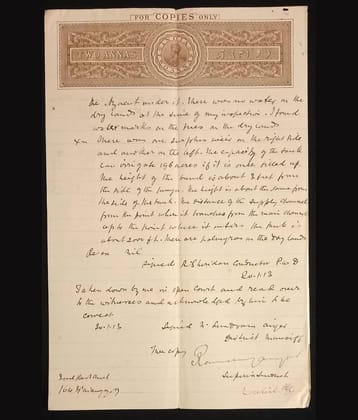 FOR COPIES ONLY
TWO ANNAS
the Ayacut under it. There was no water in the
dry lands at the time of my inspection. I found
water marks on the trees in the dry lands
There was one surplus weir on the right side
and another on the left. The capacity of the tank
can irrigate 196 acres if it is once filled up.
The height of the bund is about 8 feet from
the side of the. The height is about the same from
the side of the tank. The distance of the supply channel
from the point where it branches from the main channel
up to the point where it enters the tank is
about 2000 ft. There are palmyras in the dry lands
Re ex Nil
Signed R Sheridan Contractor P.W.D
20.1.13
Taken down by me in open Court and read over
to the witnesses and acknowledged by him to be
correct.
20.1.13 Signed N. Sundaram Aiyar
District Munsif
True copy
Superintendent